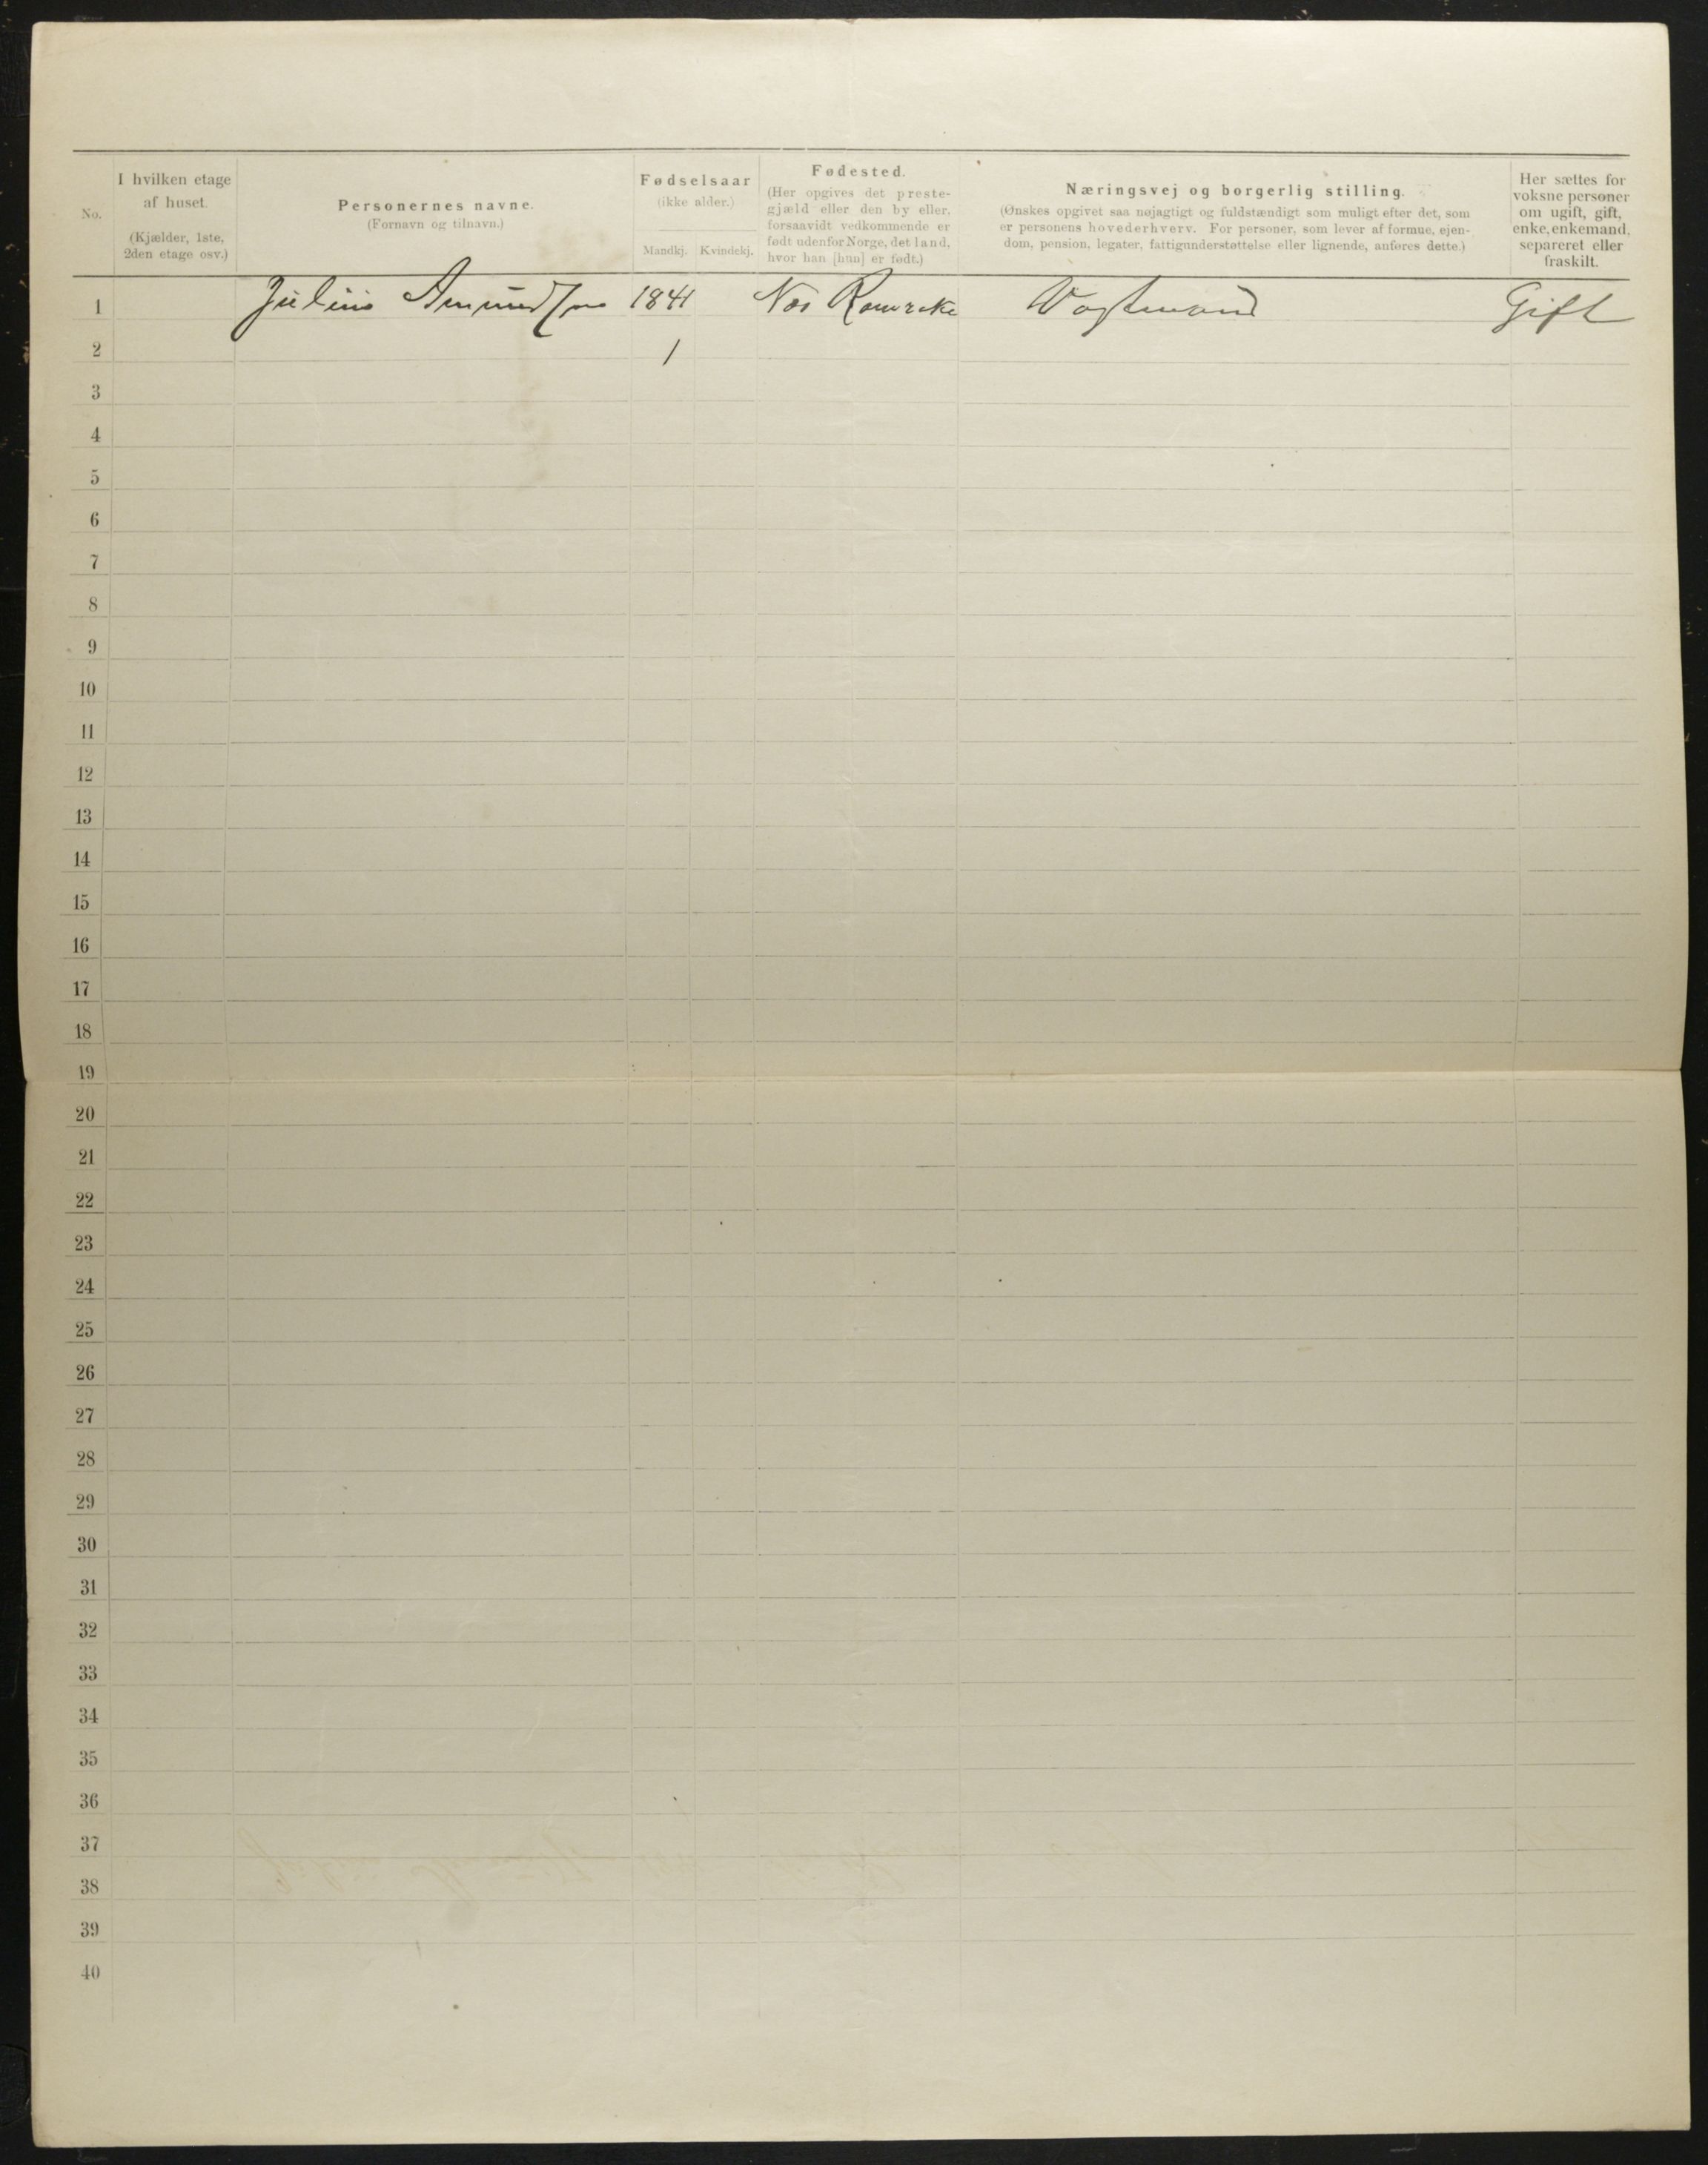 No.
I hvilken etage
af huset.
(Kjælder, 1ste,
2den etage osv.)
Personernes navne.
(Fornavn og tilnavn.)
Fødselsaar
(ikke alder.)
Mandkj.
Kvindekj.
Fødested.
(Her opgives det preste-
gjæld eller den by eller,
forsaavidt vedkommende er
født udenfor Norge, det land,
hvor han [hun] er født.)
Næringsvej og borgerlig stilling.
(Ønskes opgivet saa nøjagtigt og fuldstændigt som muligt efter det, som
er personens hovederhverv. For personer, som lever af formue, ejen-
dom, pension, legater, fattigunderstøttelse eller lignende, anføres dette.)
Her sættes for
voksne personer
om ugift, gift,
enke, enkemand,
separeret eller
fraskilt.
1 Julius Amundsen 1841 Næs Vagtmand Gift
2 1
3
4
5
6
7
8
9
10
11
12
13
14
15
16
17
18
19
20
21
22
23
24
25
26
27
28
29
30
31
32
33
34
35
36
37
38
39
40